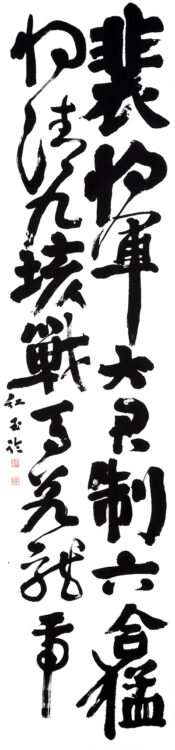 裴将軍大君制六合猛
将清九垓戰馬若龍虎
紅玉臨